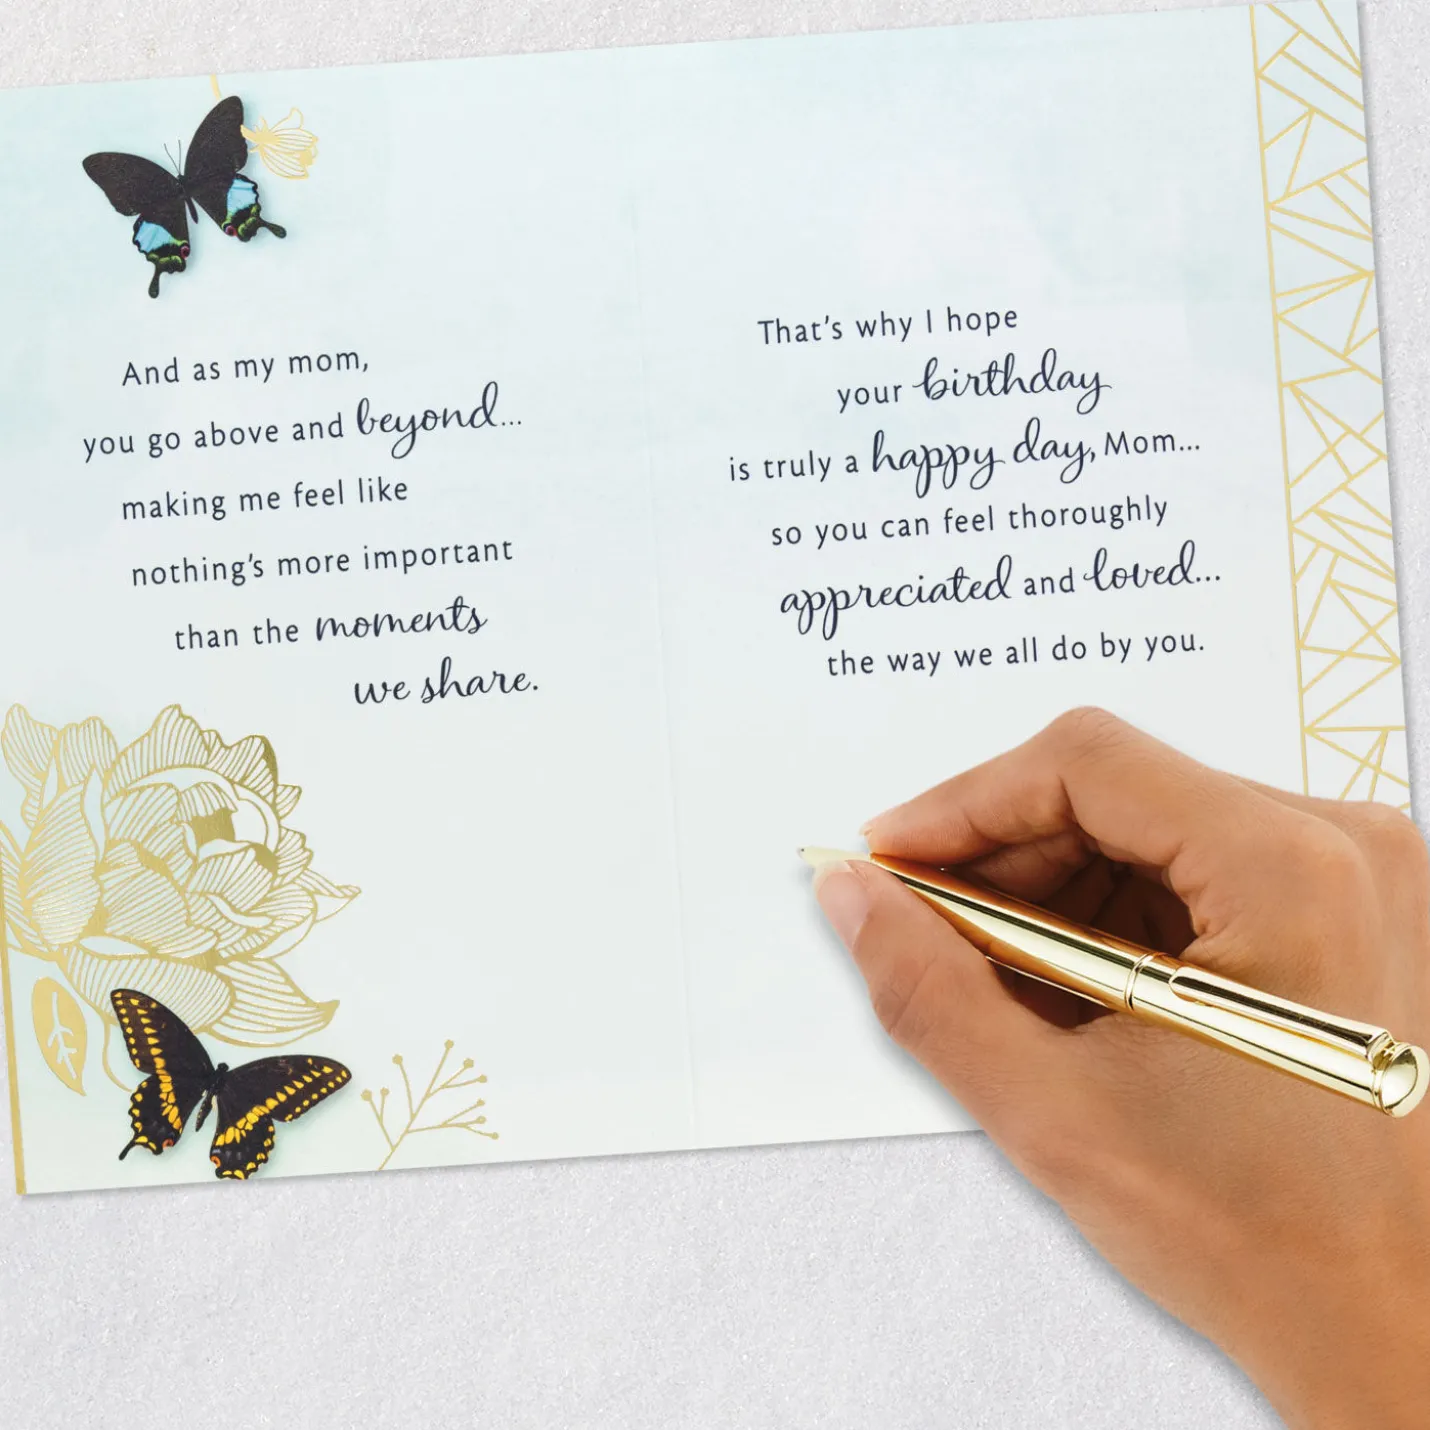 And as my mom,
you go above and beyond...
making me feel like
nothing's more important
than the moments
we share.
That's why I hope
your birthday
is truly a happy day, Mom...
so you can feel thoroughly
appreciated and loved...
the way we all do by you.